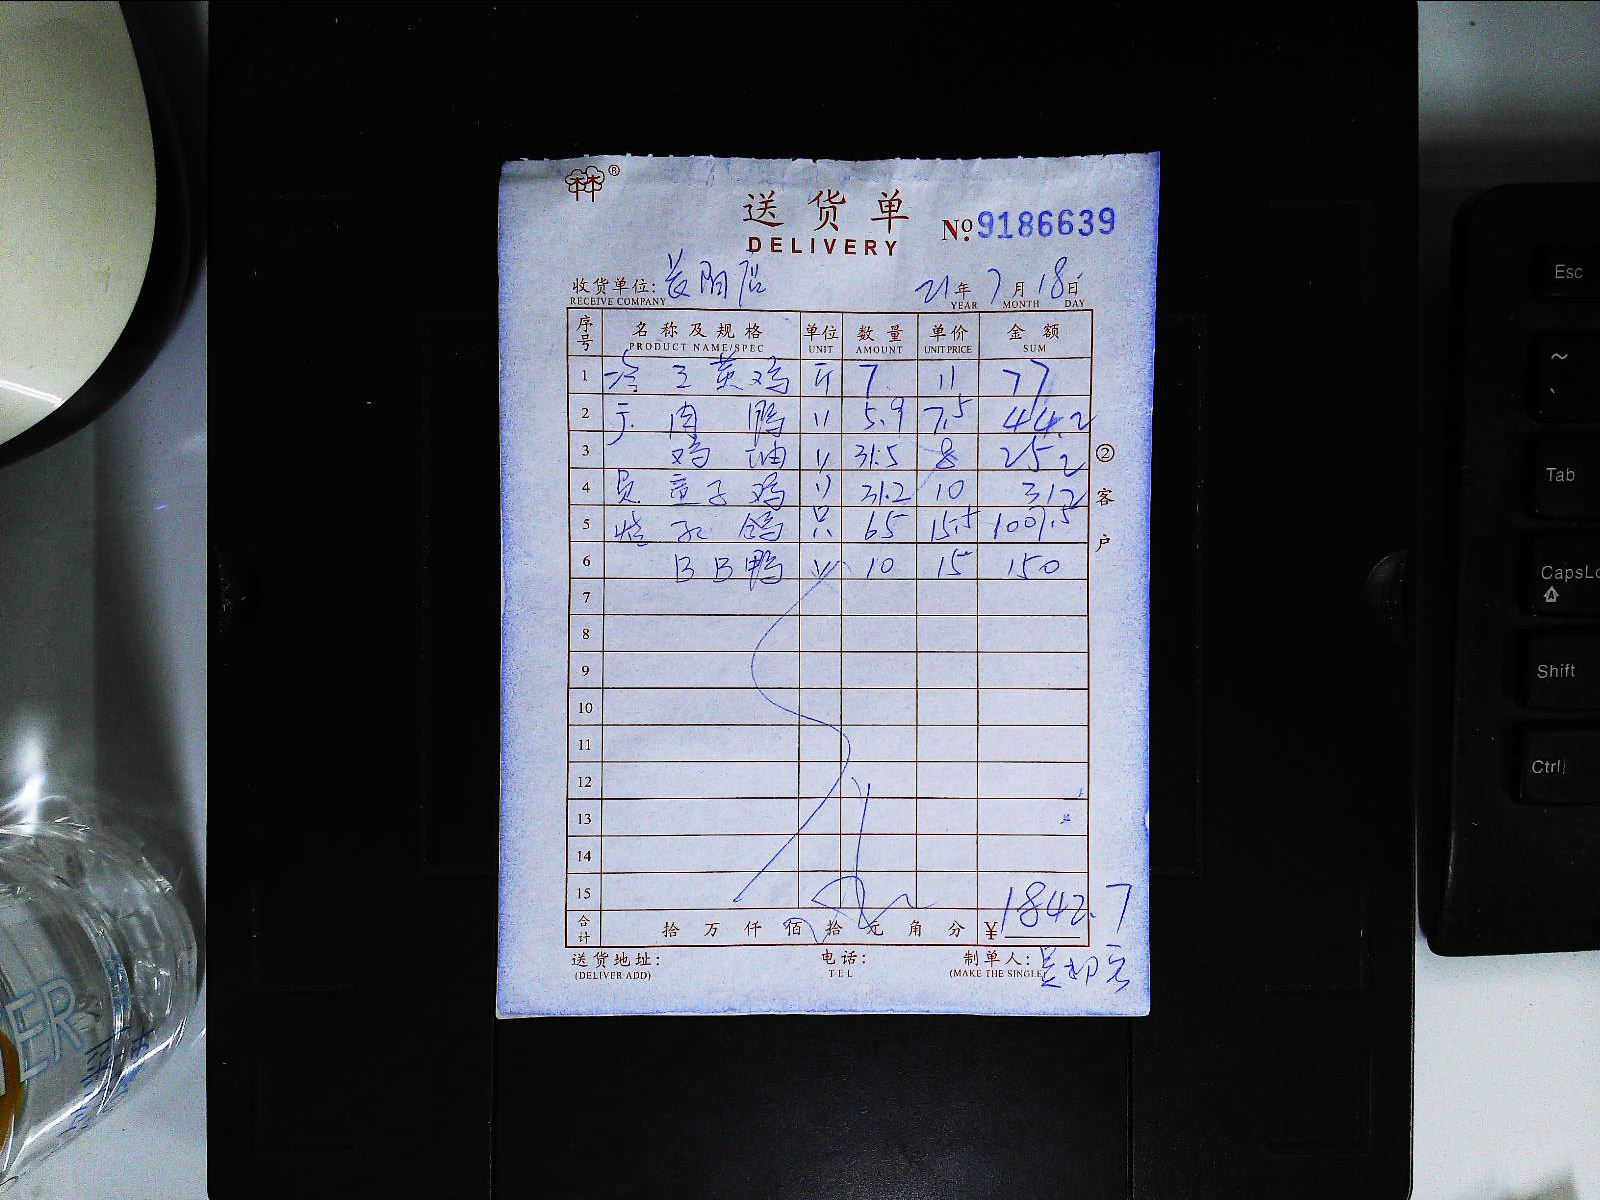 ®
送货单
DELIVERY
No.9186639
收货单位: 长阳店 21年7月18日
RECEIVE COMPANY YEAR MONTH DAY
序号 名称及规格 单位 数量 单价 金额
PRODUCT NAME/SPEC UNIT AMOUNT UNIT PRICE SUM
1 三黄鸡 斤 7 11 77
2 肉鸭 〃 5.9 7.5 44.2
3 鸡油 〃 31.5 8 252
4 童子鸡 〃 31.2 10 312
5 鸽 只 65 15.5 1007.5
6 BB鸭 〃 10 15 150
7
8
9
10
11
12
13
14
15
合计 拾万仟佰拾元角分 ¥1842.7
②客户
送货地址: 电话: 制单人:
(DELIVER ADD) TEL (MAKE THE SINGLE
Esc
~
Tab
CapsLo
Shift
Ctrl
ER